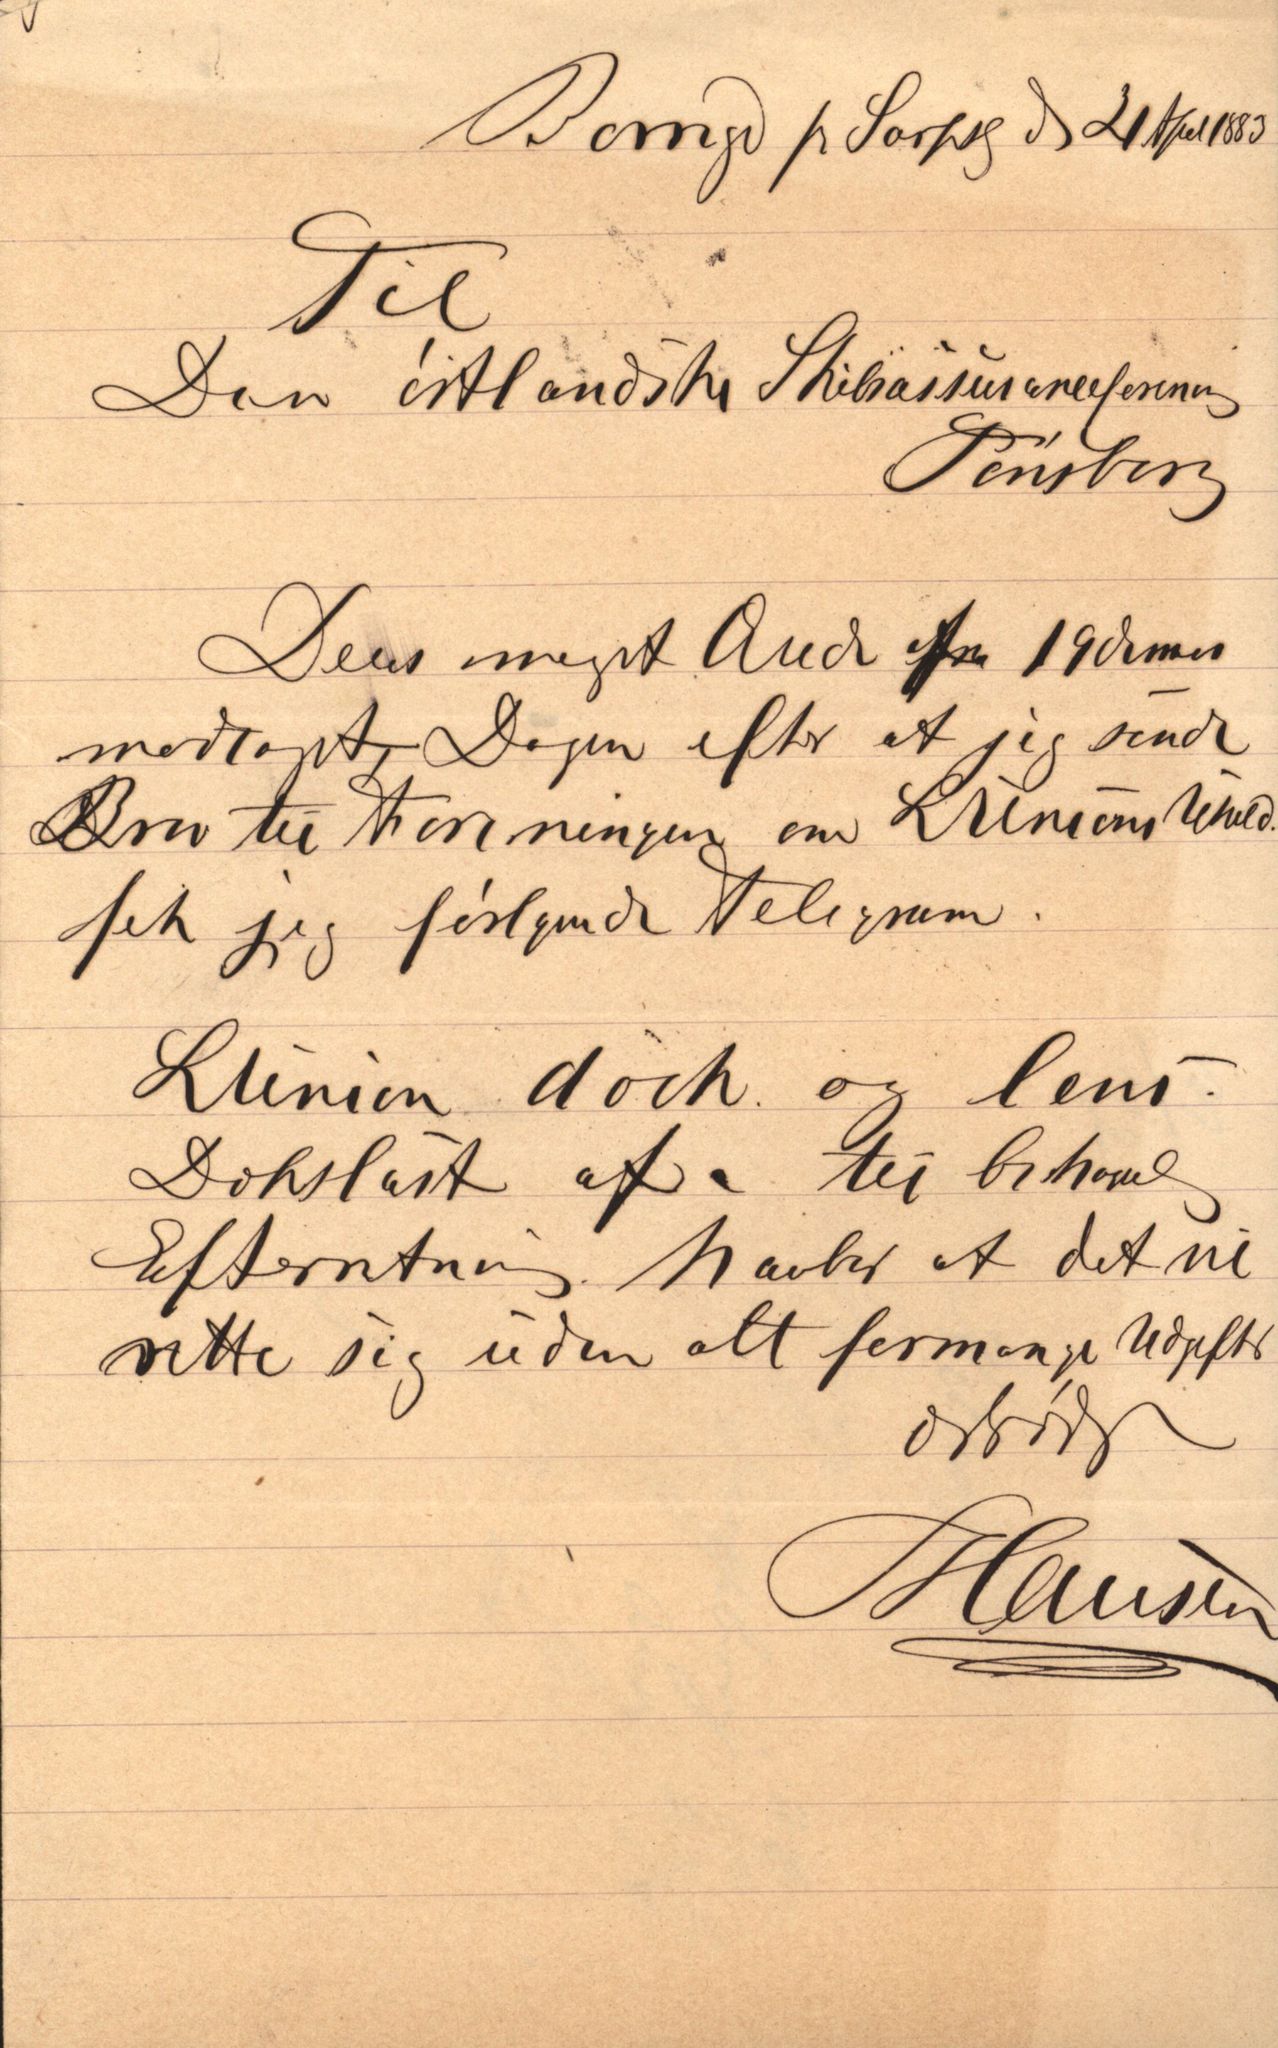 Borrgd pr Sarpsg d 21 April 1883
Til
Den östlandske Skibsassuranceforening
Tönsberg
Deres meget Ærede fra 19 dennes
modtaget, Dagen efter at jeg sendte
Brev til Foreningen om L'Unions Uheld.
fek jeg fölgende Telegram.
L'Union dock. og lens.
Dokslast af til behagelig
Efterretning. haaber at det vil
rette sig uden alt formange Udgifter
Ærbödigst
Hansen